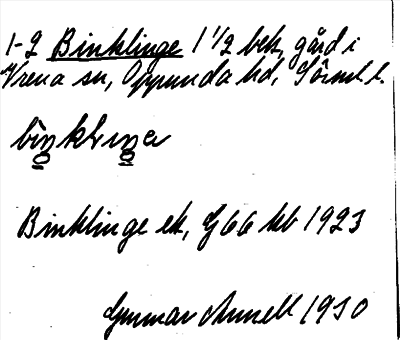 1-2 Binklinge 1 1/2 bek, gård i
Vrena sn, Oppunda hd, Sörml l.
Binklinge ek, G66 kb 1923
Gunnar Annell 1930